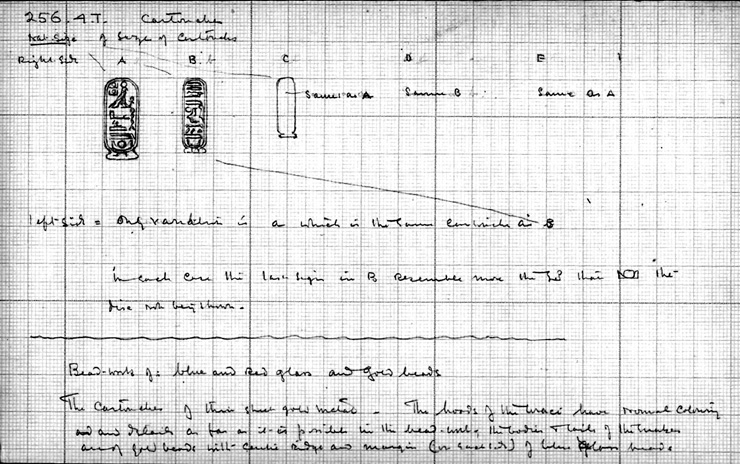 256.4T. Cartouches
Nat. Size of Size of Cartouches
Right Side A B C D E
Same as A Same B Same as A
left side = Only variation is a which is the same cartouche as B
In each case the last sign in B resembles more the that the
disc not being shown.
Bead-work of: blue and red glass and gold beads
The Cartouches of thin sheet gold metal. The hoods of the uraei have normal colouring
and details as far as it is possible in the bead-work, the bodies & tails of the snakes
are of gold beads with centre ridge and margin (on each side) of blue glass beads